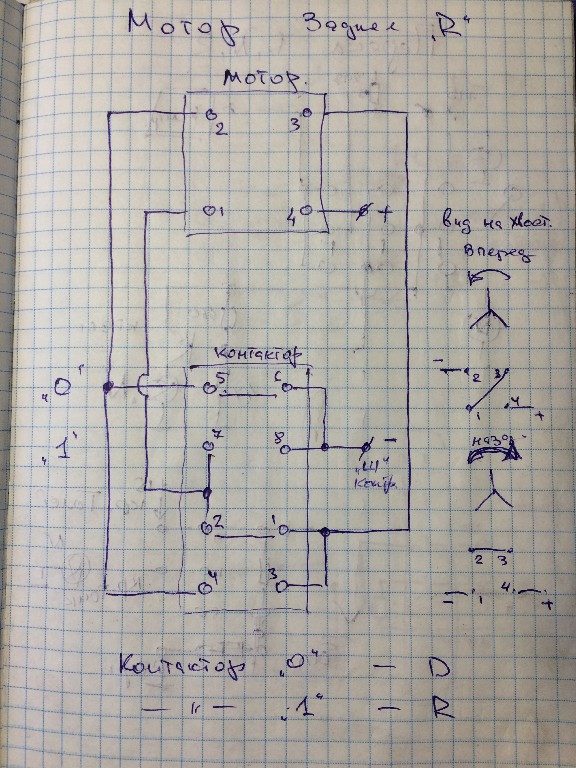 Мотор Заднее "R"
Мотор.
2 3
1 4 +
Вид на хвост.
Вперед
контактор
"0" 5 6
- 2 3
1 4 +
"1" 7 8 -
"Ш"
контр.
назад
2 1
2 3
4 3
- 1 4 +
Контактор "0" — D
— " — "1" — R